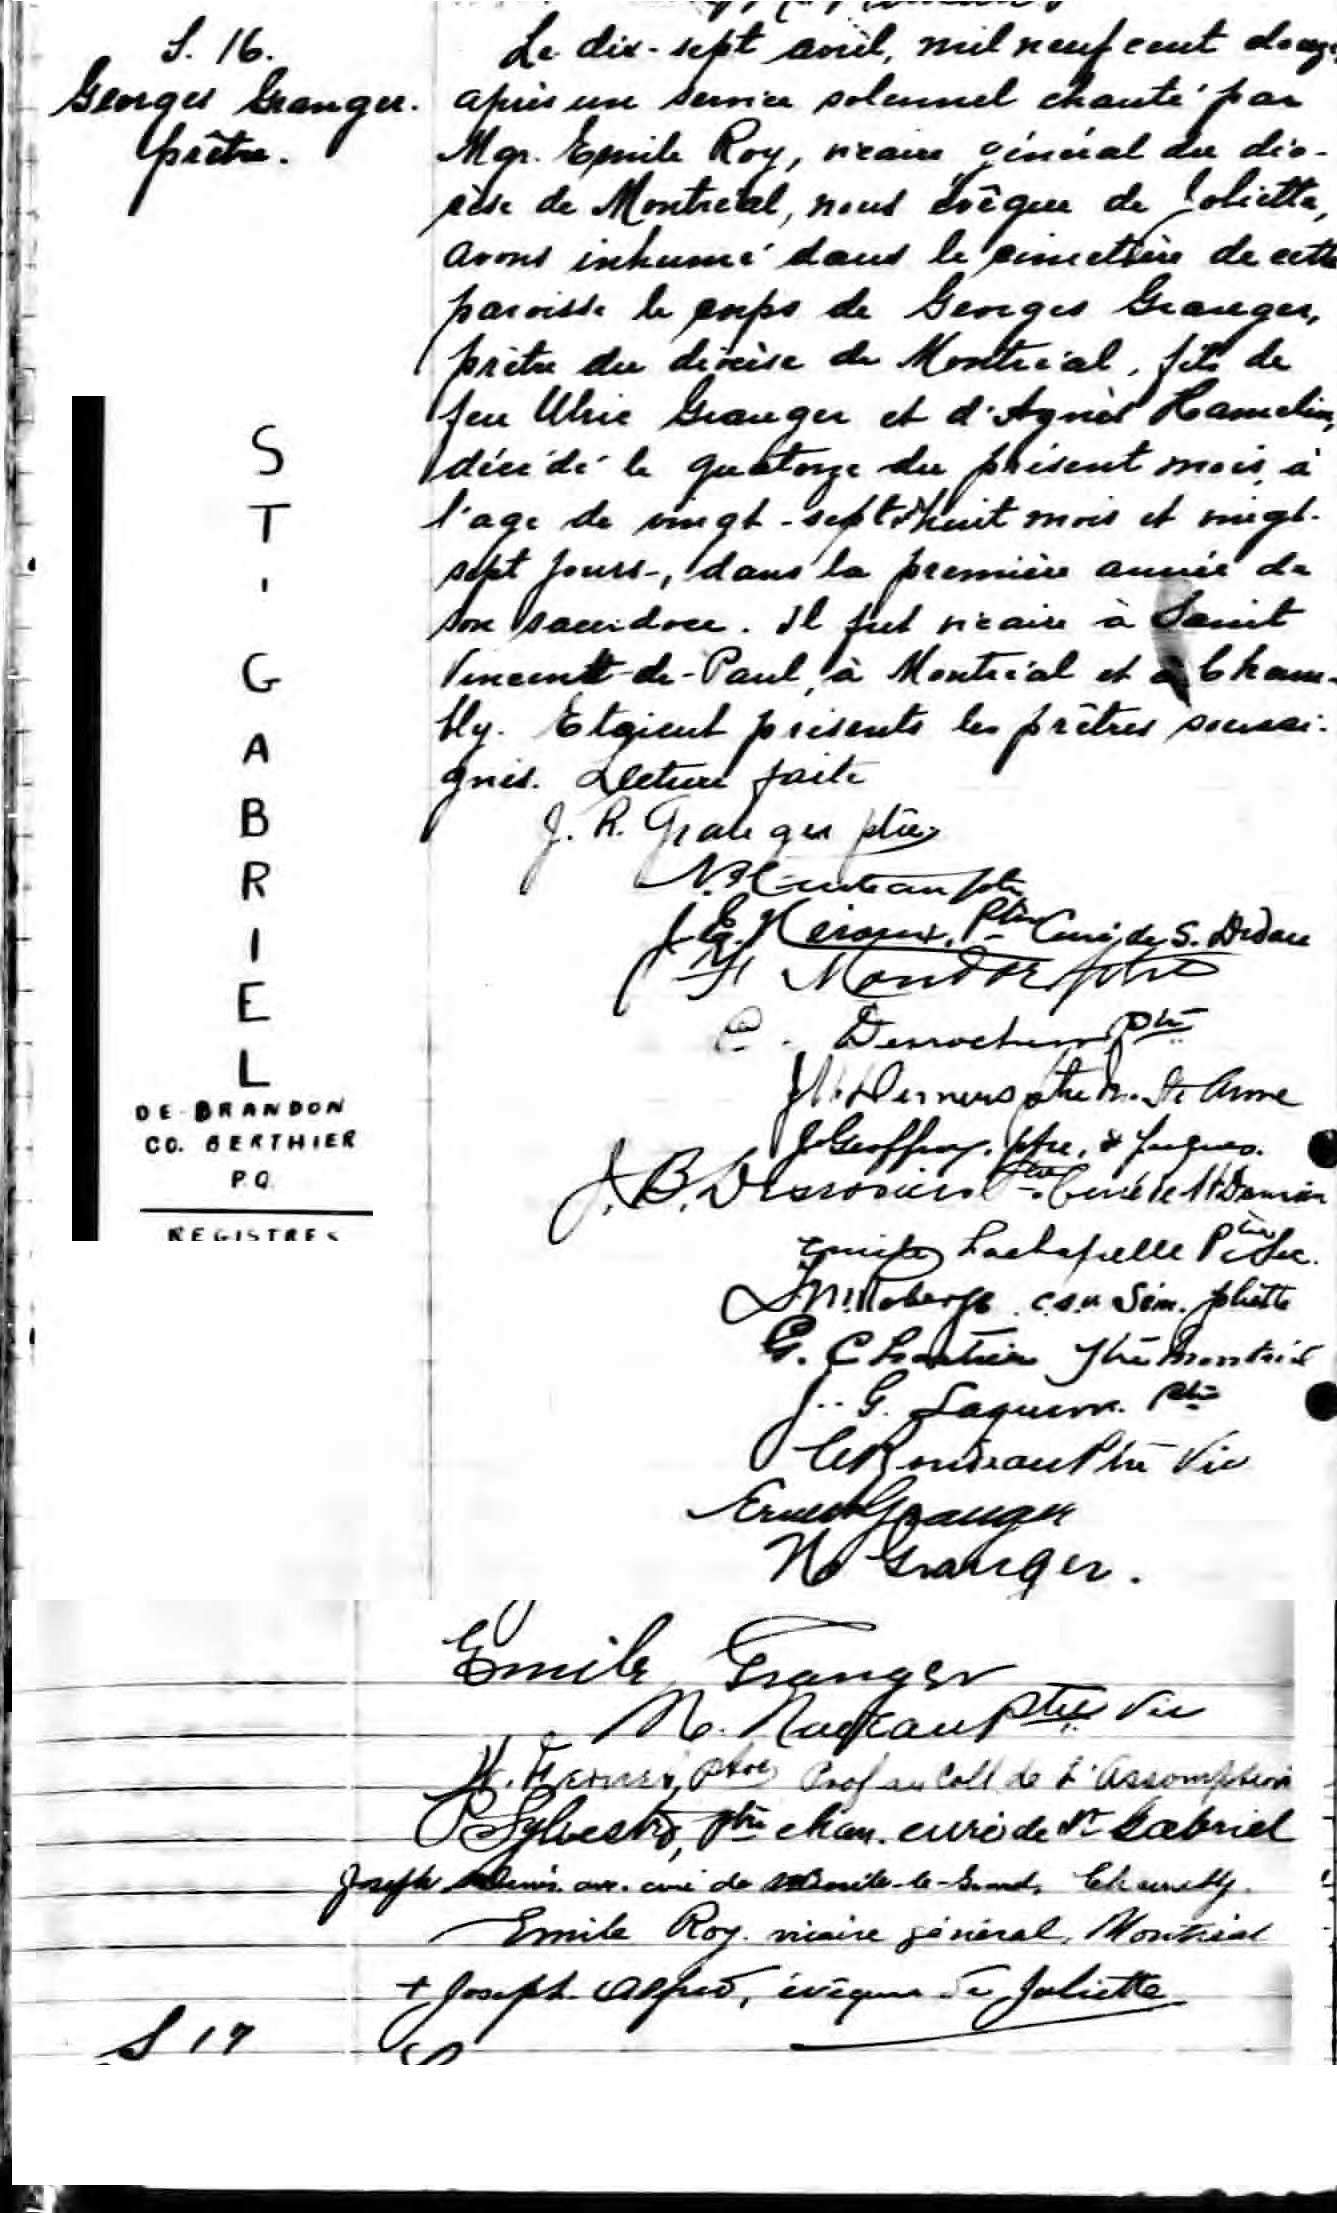 S. 16.
Georges Granger.
prêtre.
Le dix-sept avril, mil neuf cent douze,
après un service solennel chanté par
Mgr. Emile Roy, vicaire général du dio-
cèse de Montréal, nous évêque de Joliette,
avons inhumé dans le cimetière de cette
paroisse le corps de Georges Granger,
prêtre du diocèse de Montréal, fils de
feu Ulric Granger et d'Agnès Hamelin,
décédé le quatorze du présent mois, à
l'age de vingt-sept & huit mois et vingt-
sept jours, dans la première année de
son sacerdoce. Il fut vicaire à Saint
Vincent-de-Paul, à Montréal et à Cham-
bly. Etaient présents les prêtres soussi-
gnés. Lecture faite
J. R. Granger ptre
ptre
J. E. Héroux, Ptre Curé de S. Didace
Mondor ptre
C. Desrochers ptre
ptre Ste Anne
J. Geoffroy, ptre,
J. B. Desrosiers Ptre Curé de St Damien
Lachapelle Ptre
Roberge c.s.v. Sém. Joliette
G. Chartier Ptre Montréal
J. G. Ptre
Rondeau Ptre Vic
Ernest Granger
N. Granger.
Emile Granger
Ptre Vic
Ptre Prof au Coll de L'Assomption
P Sylvestre, ptre chan. curé de St Gabriel
Joseph curé de Chambly.
Emile Roy. vicaire général, Montréal
+ Joseph-Alfred, évêque de Joliette
S 17
ST-GABRIEL
DE-BRANDON
CO. BERTHIER
P.Q.
REGISTRES